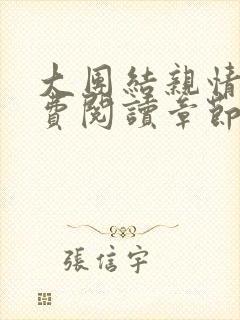 大團結親情
費閱讀章節
張信宇